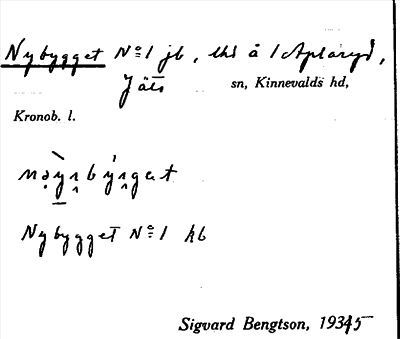 Nybygget No 1 jb, thd å 1 Aplaryd,
Jäts sn, Kinnevalds hd,
Kronob. l.
Nybygget No 1 hb
Sigvard Bengtson, 1935